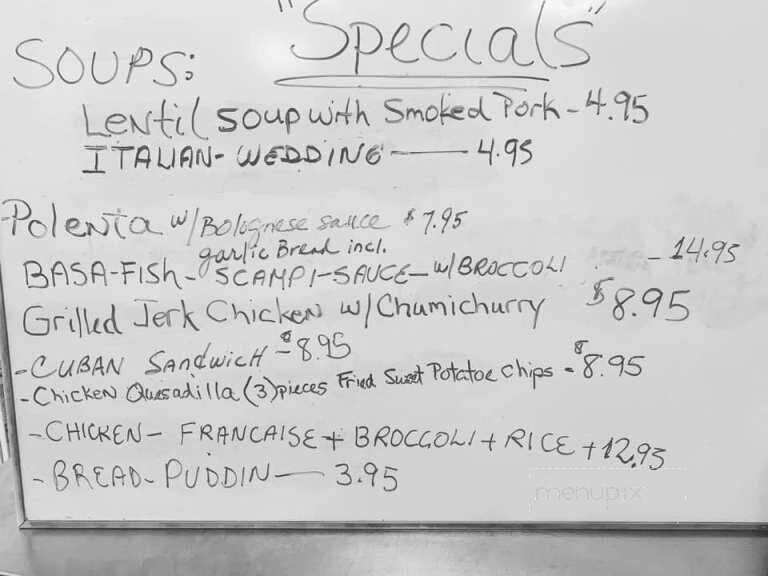 "Specials"
SOUPS:
Lentil soup with Smoked Pork - 4.95
ITALIAN-WEDDING —— 4.95
Polenta w/Bolognese sauce $7.95
garlic Bread incl.
BASA-FISH- SCAMPI-SAUCE-w/BROCCOLI - 14.95
Grilled Jerk Chicken w/Chumichurry $8.95
-CUBAN SANDWICH - $8.95
-Chicken Quesadilla (3) pieces Fried Sweet Potatoe Chips - $8.95
-CHICKEN- FRANCAISE + BROCCOLI + RICE + 12.95
-BREAD-PUDDIN —— 3.95
menupix